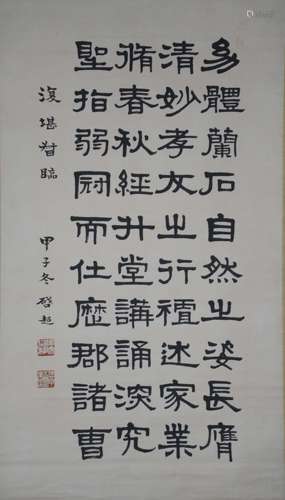 幼體蘭石自然之姿長膺
清妙孝友之行禮述家業
脩春秋經升堂講誦深究
聖指弱冠而仕歷郡諸曹
復堪督臨 甲子冬啓超